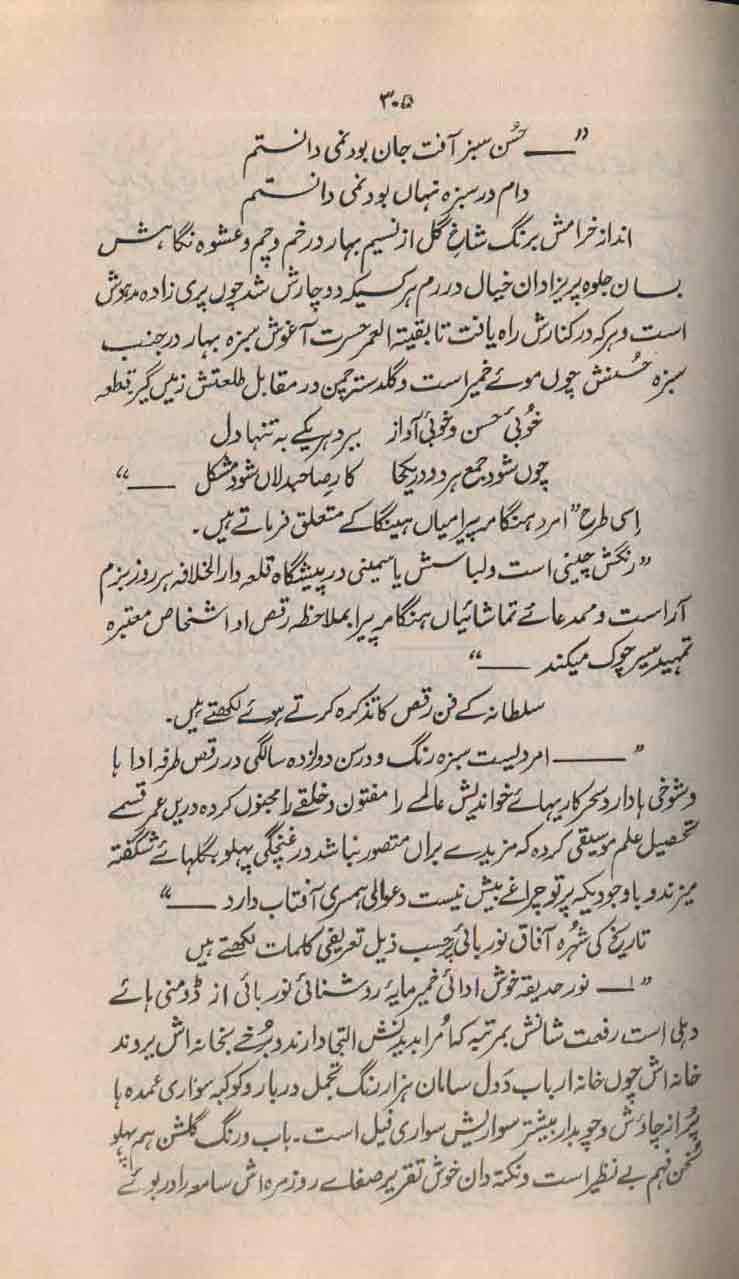 ۳۰۵
"——— حُسن سبز آفت جان بود نمی دانستم
دام در سبزہ نہاں بود نمی دانستم
انداز خرامش برنگ شاخِ گل از نسیم بہار در خم و چم و عشوہ نگاہش
بسان جلوہ پریزادان خیال در رم ہر کسیکہ دوچارش شد چوں پری زادہ مدہوش
است و ہر کہ در کنارش راہ یافت تا بقیتہ العمر حسرت آغوش سبزہ بہار در جنب
سبزہ حُسنش چوں موئے خمیر است و گلدستہ چمن در مقابل طلعتش زمیں گیر قطعہ
خُوبیٔ حسن و خوبیٔ آداز ببرد ہریکے بہ تنہا دل
چوں شود جمع ہر دو در یکجا کارِ صاحبدلاں شود مشکل ———"
اِسی طرح "امرد ہنگامہ پیرا میاں ہینگا کے متعلق فرماتے ہیں۔
"رنگش چینی است و لباسش یاسمینی در پیشگاہ قلعہ دارالخلافہ ہر روز بزم
آراست و ممدعائے تماشائیاں ہنگامہ پیرا بملاحظہ رقص او اشخاص معتبرہ
تمہید سیر چوک میکند ———"
سلطانہ کے فن رقص کا تذکرہ کرتے ہوئے لکھتے ہیں۔
"——— امردیست سبزہ رنگ و در سن دوازدہ سالگی در رقص طرفہ ادا ہا
و شوخی ہا دارد سحر کاریہائے خواندیش عالمے را مفتون و خلقے را مجنوں کردہ دریں عمر قسمے
تحصیل علم موسیقی کردہ کہ مزیدے براں متصور نباشد در غنچگی پہلو بگلہائے شگفتہ
میزند و باوجودیکہ پر تو چراغے بیش نیست دعوالی ہمسری آفتاب دارد ———"
تاریخ کی شہُرہ آفاق نور بائی پر حسب ذیل تعریفی کلمات لکھتے ہیں
"۱— نور حدیقہ خوش ادائی خمیر مایۂ روشنائی نور بائی از ڈومنی ہائے
دہلی است رفعت شانش بمرتبہ کہ اُمرا بدیدنش التجا دارند و برُخے بخانہ اش بروند
خانہ اش چوں خانہ ارباب دَول سامان ہزار رنگ تجمل دربار و کوکبہ سواری عمدہ ہا
پرُ از چاؤش و چوبدار بیشتر سواریش سواری فیل است۔ باب و رنگ گلشن ہم پہلو
سخُن فہم بے نظیر است و نکتہ دان خوش تقریر صفاے روزمرہ اش سامعہ را در بوئے